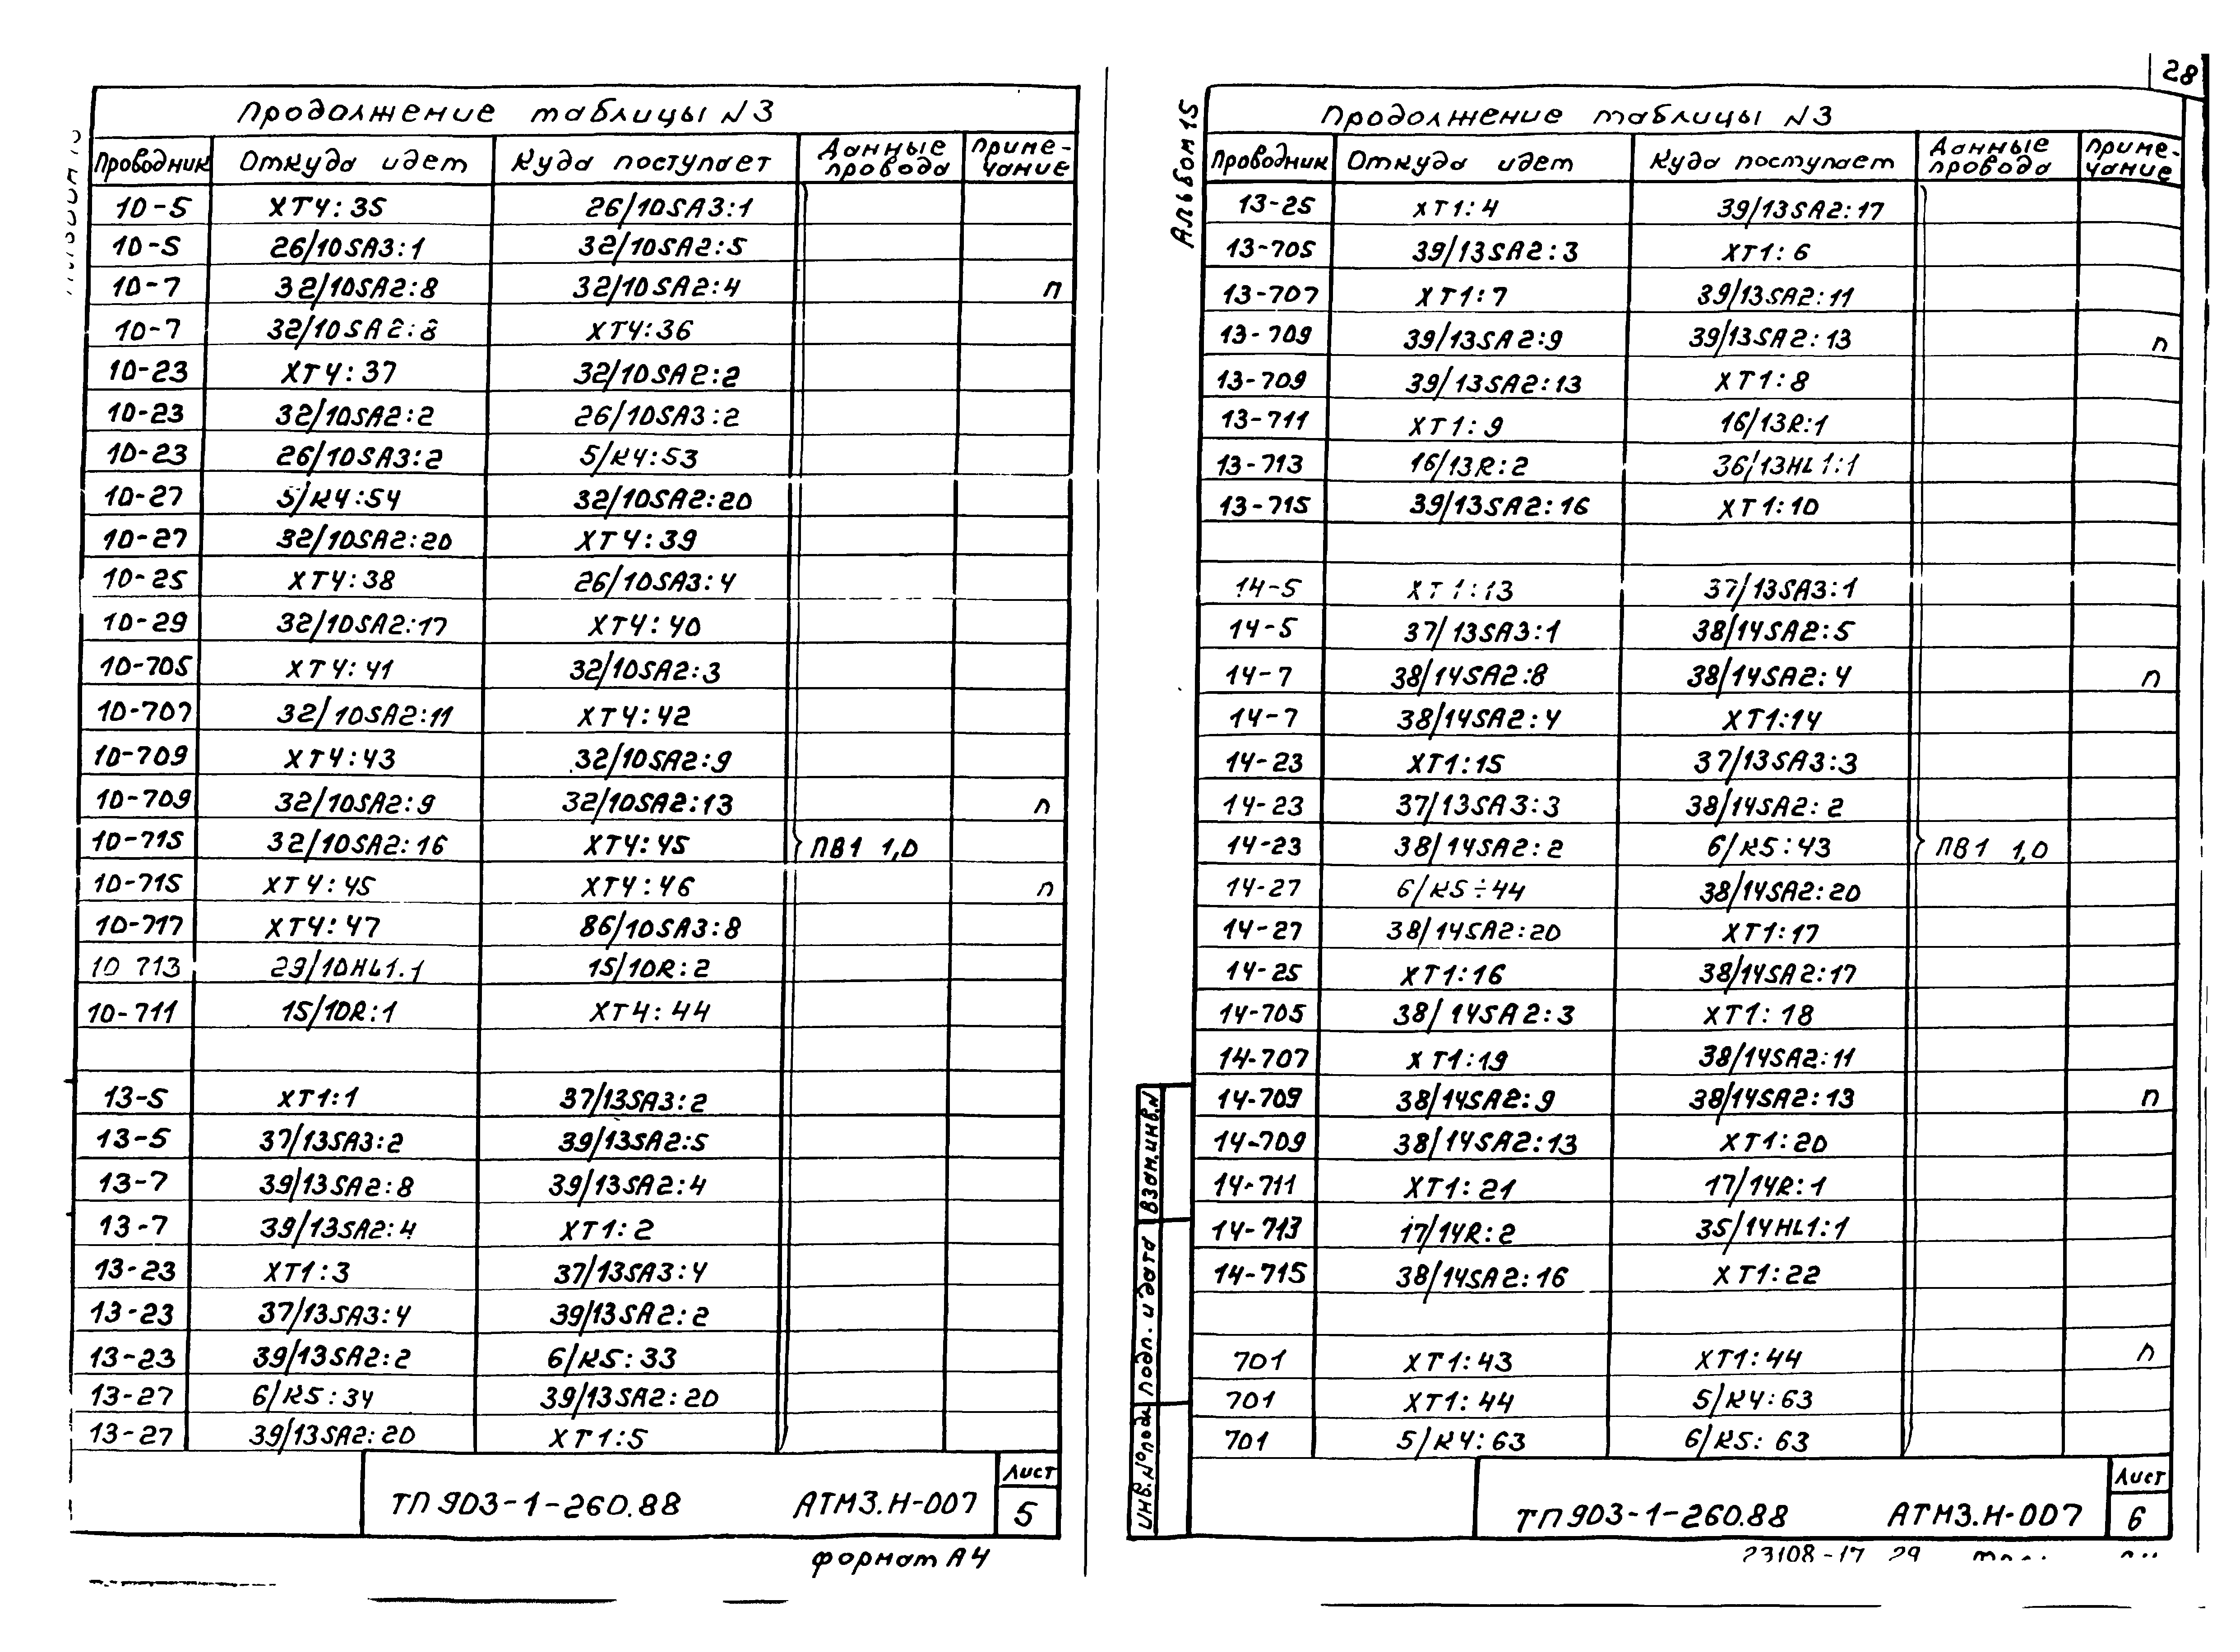 Продолжение таблицы N3
Проводник Откуда идет Куда поступает Данные провода Приме-чание
10-5 XT4:35 26/10SA3:1
10-5 26/10SA3:1 32/10SA2:5
10-7 32/10SA2:8 32/10SA2:4 п
10-7 32/10SA2:8 XT4:36
10-23 XT4:37 32/10SA2:2
10-23 32/10SA2:2 26/10SA3:2
10-23 26/10SA3:2 5/K4:53
10-27 5/K4:54 32/10SA2:20
10-27 32/10SA2:20 XT4:39
10-25 XT4:38 26/10SA3:4
10-29 32/10SA2:17 XT4:40
10-705 XT4:41 32/10SA2:3
10-707 32/10SA2:11 XT4:42
10-709 XT4:43 32/10SA2:9
10-709 32/10SA2:9 32/10SA2:13 п
10-715 32/10SA2:16 XT4:45 ПВ1 1,0
10-715 XT4:45 XT4:46 п
10-717 XT4:47 86/10SA3:8
10 713 29/10HL1.1 15/10R:2
10-711 15/10R:1 XT4:44
13-5 XT1:1 37/13SA3:2
13-5 37/13SA3:2 39/13SA2:5
13-7 39/13SA2:8 39/13SA2:4
13-7 39/13SA2:4 XT1:2
13-23 XT1:3 37/13SA3:4
13-23 37/13SA3:4 39/13SA2:2
13-23 39/13SA2:2 6/K5:33
13-27 6/K5:34 39/13SA2:20
13-27 39/13SA2:20 XT1:5
ТП 903-1-260.88 АТМ3.Н-007 Лист 5
формат А4
28
Альбом 15
Продолжение таблицы N3
Проводник Откуда идет Куда поступает Данные провода Приме-чание
13-25 XT1:4 39/13SA2:17
13-705 39/13SA2:3 XT1:6
13-707 XT1:7 39/13SA2:11
13-709 39/13SA2:9 39/13SA2:13 п
13-709 39/13SA2:13 XT1:8
13-711 XT1:9 16/13R:1
13-713 16/13R:2 36/13HL1:1
13-715 39/13SA2:16 XT1:10
14-5 XT1:13 37/13SA3:1
14-5 37/13SA3:1 38/14SA2:5
14-7 38/14SA2:8 38/14SA2:4 п
14-7 38/14SA2:4 XT1:14
14-23 XT1:15 37/13SA3:3
14-23 37/13SA3:3 38/14SA2:2
14-23 38/14SA2:2 6/K5:43 ПВ1 1,0
14-27 6/K5÷44 38/14SA2:20
14-27 38/14SA2:20 XT1:17
14-25 XT1:16 38/14SA2:17
14-705 38/14SA2:3 XT1:18
14-707 XT1:19 38/14SA2:11
14-709 38/14SA2:9 38/14SA2:13 п
14-709 38/14SA2:13 XT1:20
14-711 XT1:21 17/14R:1
14-713 17/14R:2 35/14HL1:1
14-715 38/14SA2:16 XT1:22
701 XT1:43 XT1:44 п
701 XT1:44 5/K4:63
701 5/K4:63 6/K5:63
Взам.инв.N
подп. и дата
Инв.№подл
ТП 903-1-260.88 АТМ3.Н-007 Лист 6
23108-17 29